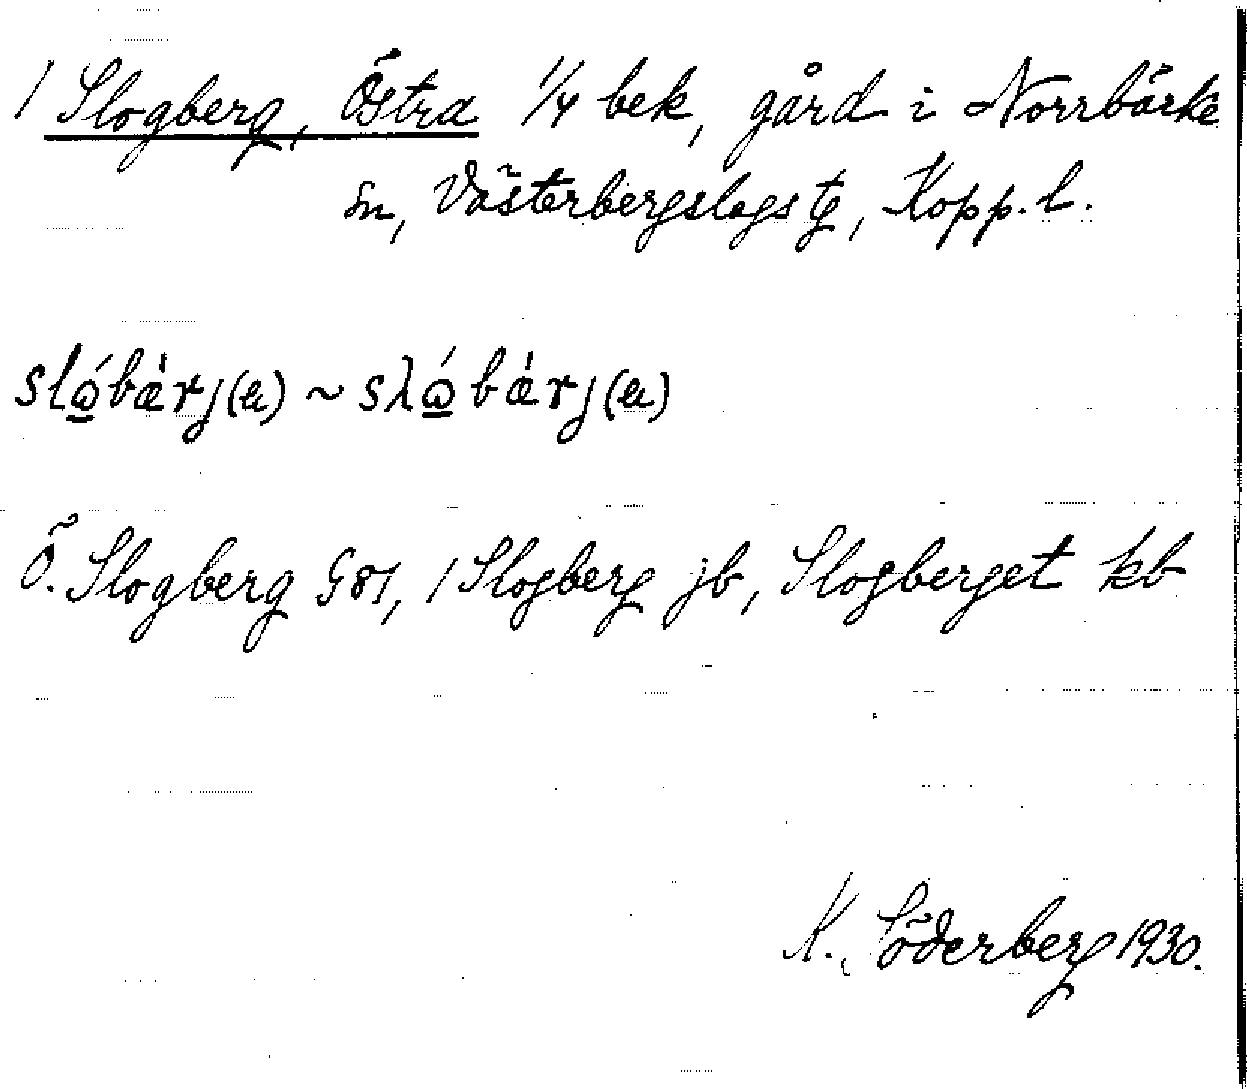 1 Slogberg, Östra 1/4 bek, gård i Norrbärke
sn, Västerbergslags tg, Kopp. l.
slώ̲bæ̀rj(ɐ) ~ sλώ̲bæ̀rj(ɐ)
Ö. Slogberg G81, 1 Slogberg jb, Slogberget kb
K. Söderberg 1930.